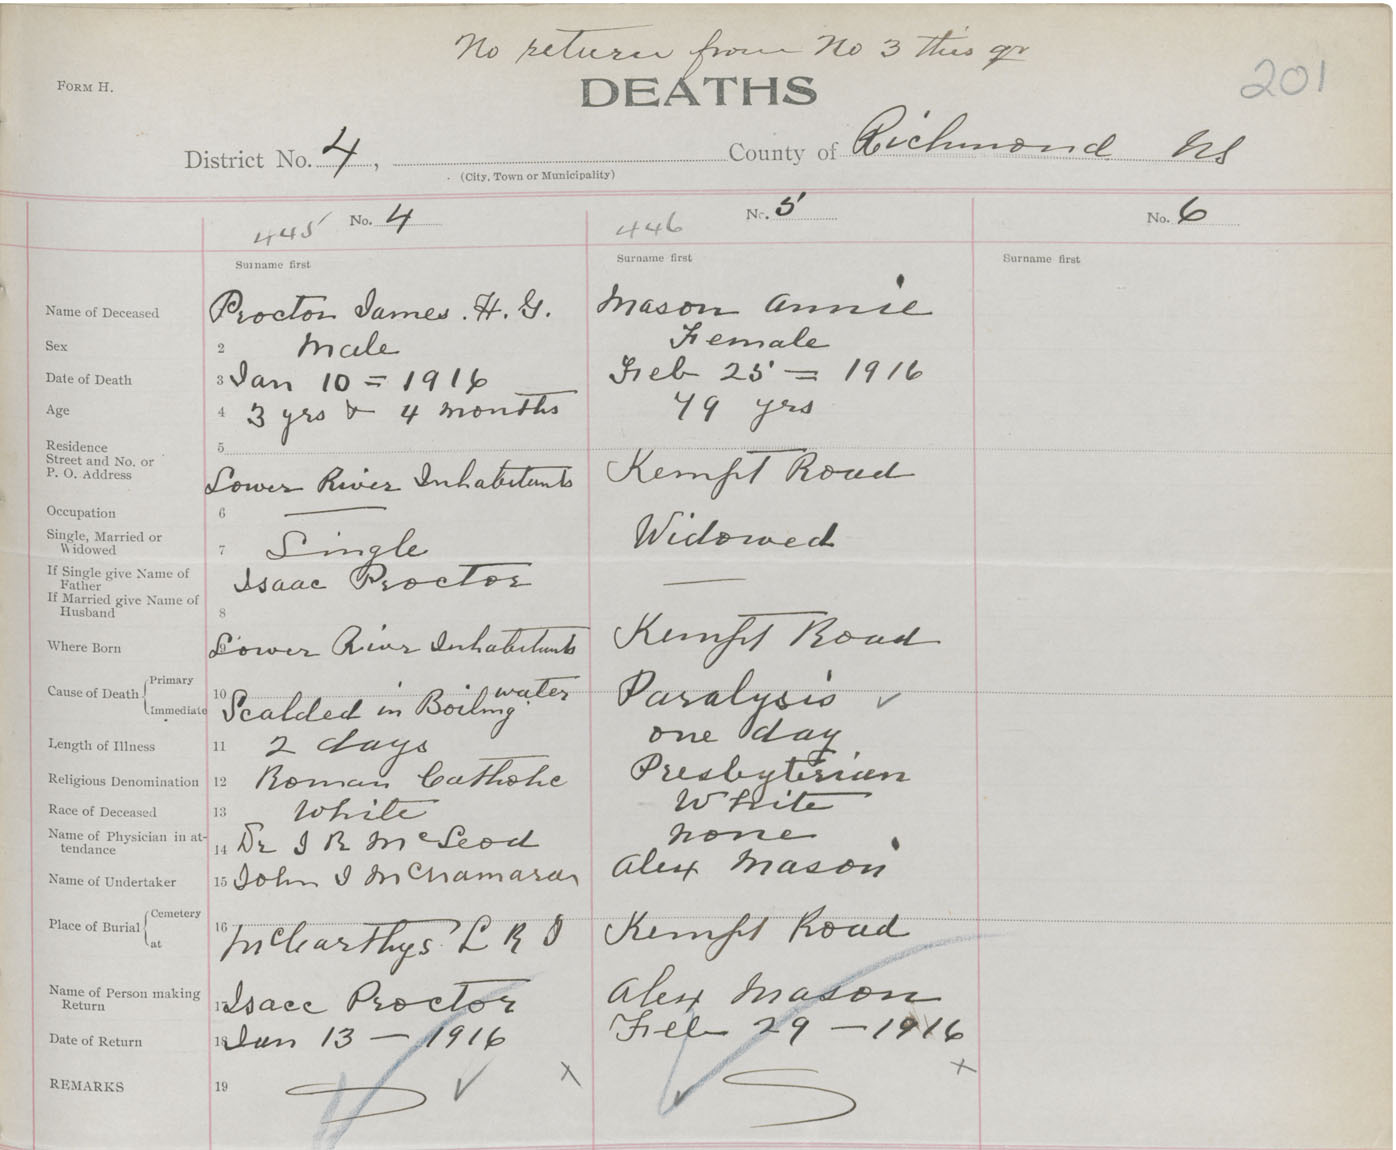 No return from No 3 this qr
FORM H.
DEATHS
201
District No. 4, County of Richmond NS
(City, Town or Municipality)
445 No. 4
446 No. 5
No. 6
Surname first Surname first Surname first
Name of Deceased Proctor James. H. G. Mason Annie
Sex 2 Male Female
Date of Death 3 Jan 10 = 1916 Feb 25 = 1916
Age 4 3 yrs & 4 months 79 yrs
Residence 5
Street and No. or
P. O. Address Lower River Inhabitants Kempt Road
Occupation 6 —
Single, Married or
Widowed 7 Single Widowed
If Single give Name of
Father Isaac Proctor —
If Married give Name of
Husband 8
Where Born 9 Lower River Inhabitants Kempt Road
Cause of Death Primary 10
Immediate Scalded in Boiling water Paralysis
Length of Illness 11 2 days one day
Religious Denomination 12 Roman Catholic Presbyterian
Race of Deceased 13 White White
Name of Physician in at-
tendance 14 Dr J R McLeod none
Name of Undertaker 15 John J McNamara Alex Mason
Place of Burial Cemetery 16
at McCarthys L R I Kempt Road
Name of Person making
Return 17 Isacc Proctor Alex Mason
Date of Return 18 Jan 13 — 1916 Feb 29 — 1916
REMARKS 19